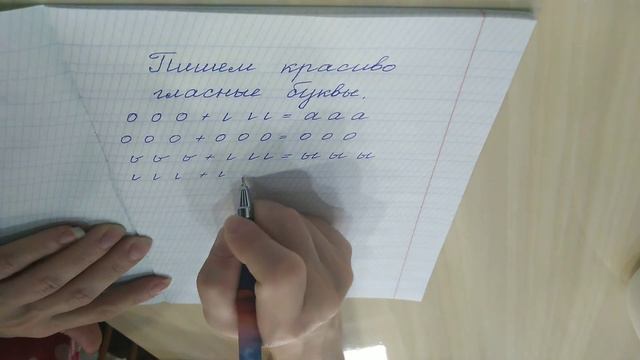 Пишем красиво
гласные буквы.
о о о + ι ι ι = а а а
о о о + о о о = о о о
ь ь ь + ι ι ι = ы ы ы
ι ι ι + ι